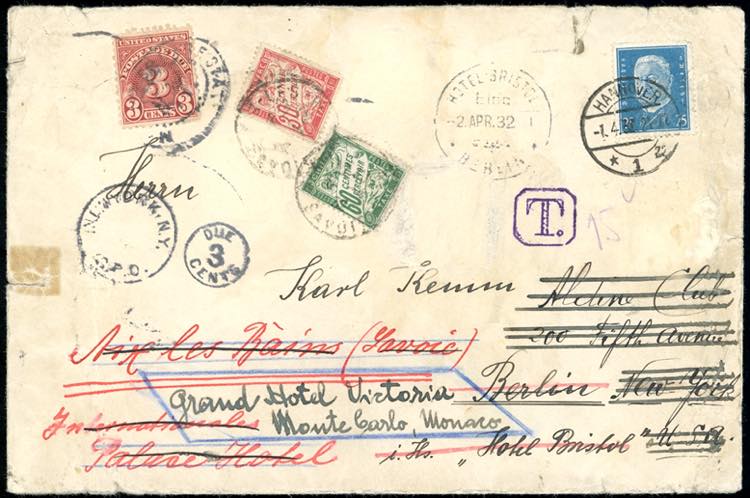 UNITED STATES
POSTAGE DUE
3
3 CENTS 3
30
60
CENTIMES
SAVOIE
HOTEL BRISTOL
Eing
-2.APR.32
BERLIN
HANNOVER
-1.4.32
* 1
25
NEW YORK, N.Y.
G.P.O.
DUE
3
CENTS
T.
15
Herrn
Karl Kemm
Aldine Club
200 Fifth Avenue
New York
U S A.
Aix les Bains (Savoie)
Internationales
Palace Hotel
Grand Hotel Victoria
Monte Carlo, Monaco
Berlin
i. Hs. „Hotel Bristol"